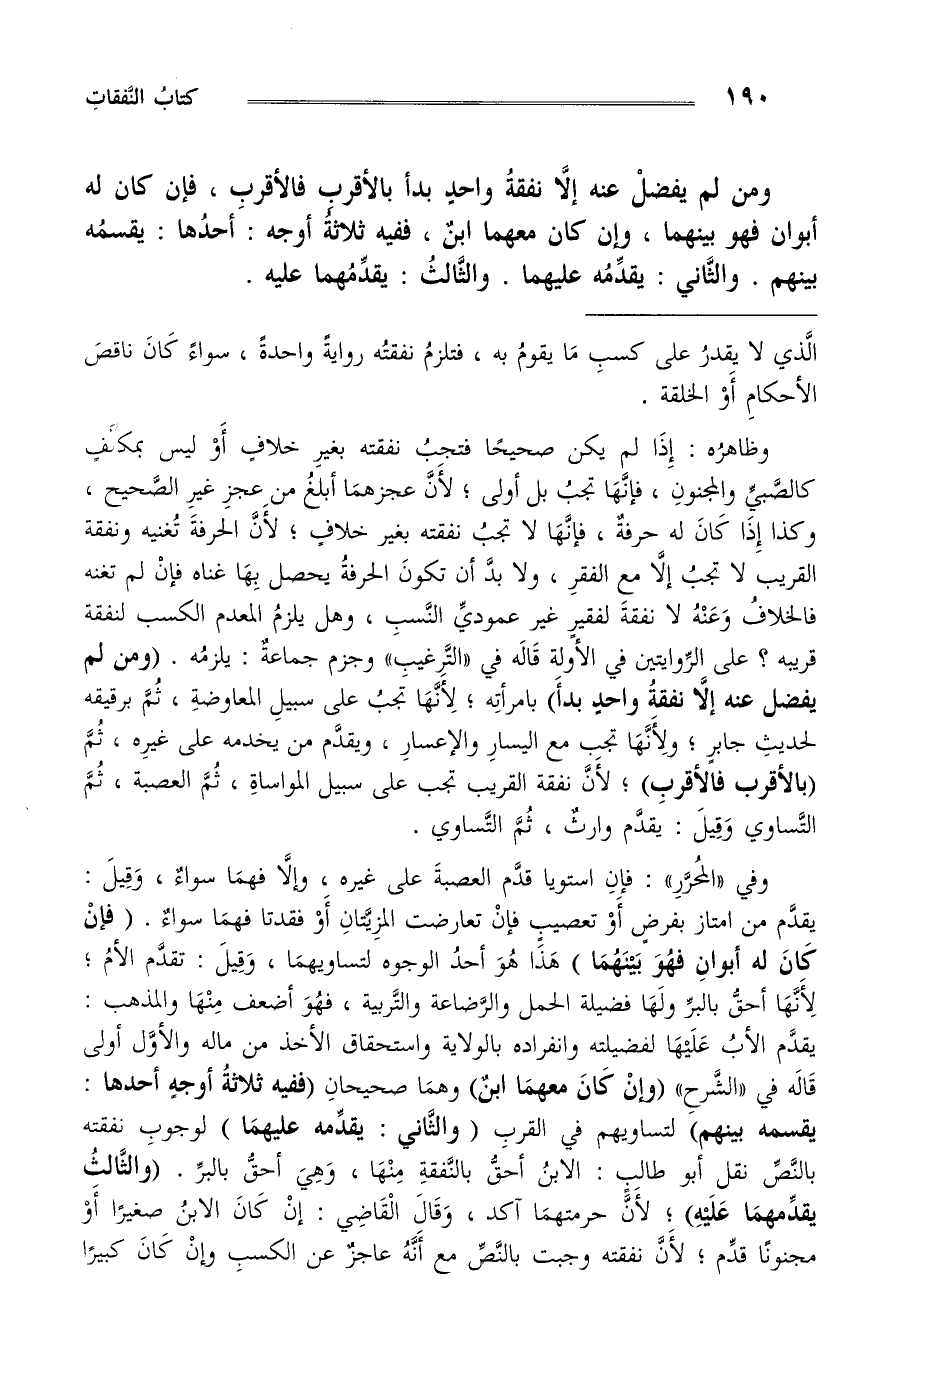 ١٩٠ كتابُ النَّفقاتِ
ومن لم يفضلْ عنه إلَّا نفقةُ واحدٍ بدأ بالأقربِ فالأقربِ ، فإن كان له
أبوان فهو بينهما ، وإن كان معهما ابنٌ ، ففيه ثلاثةُ أوجه : أحدُها : يقسمُه
بينهم . والثَّاني : يقدِّمُه عليهما . والثَّالثُ : يقدِّمُهما عليه .
الَّذي لا يقدرُ على كسبِ مَا يقومُ به ، فتلزمُ نفقتُه روايةً واحدةً ، سواءً كَانَ ناقصَ
الأحكامِ أَوْ الخلقة .
وظاهرُه : إِذَا لم يكن صحيحًا فتجبُ نفقته بغيرِ خلافٍ أَوْ ليس بمكلَّفٍ
كالصَّبيِّ والمجنونِ ، فإنَّهَا تجبُ بل أولى ؛ لأنَّ عجزهمَا أبلغُ من عجزِ غيرِ الصَّحيح ،
وكذا إِذَا كَانَ له حرفةٌ ، فإنَّهَا لا تجبُ نفقته بغير خلافٍ ؛ لأنَّ الحرفةَ تُغنيه ونفقة
القريب لا تجبُ إلَّا مع الفقرِ ، ولا بدَّ أن تكونَ الحرفةُ يحصل بِهَا غناه فإنْ لم تغنه
فالخلافُ وَعَنْهُ لا نفقةَ لفقيرٍ غير عموديِّ النَّسبِ ، وهل يلزمُ المعدم الكسب لنفقة
قريبه ؟ على الرِّوايتين في الأولة قَالَه في «التَّرغيبِ» وجزم جماعةٌ : يلزمُه . (ومن لم
يفضل عنه إلَّا نفقةُ واحدٍ بدأ) بامرأتِه ؛ لِأَنَّهَا تجبُ على سبيلِ المعاوضةِ ، ثُمَّ برقيقه
لحديثِ جابرٍ ؛ ولِأَنَّهَا تجب مع اليسارِ والإعسارِ ، ويقدَّم من يخدمه على غيرِه ، ثُمَّ
(بالأقرب فالأقربِ) ؛ لأنَّ نفقة القريب تجب على سبيل المواساةِ ، ثُمَّ العصبة ، ثُمَّ
التَّساوي وَقِيلَ : يقدَّم وارثٌ ، ثُمَّ التَّساوي .
وفي «المُحَرَّرِ» : فإنِ استويا قدَّم العصبةَ على غيره ، وإلَّا فهمَا سواءٌ ، وَقِيلَ :
يقدَّم من امتاز بفرضٍ أَوْ تعصيبٍ فإنْ تعارضت المزِيَّتانِ أَوْ فقدتا فهمَا سواءٌ . ( فإنْ
كَانَ له أبوانِ فهُوَ بَيْنَهُمَا ) هَذَا هُوَ أحدُ الوجوه لتساويهمَا ، وَقِيلَ : تقدَّم الأمُ ؛
لِأَنَّهَا أحقُّ بالبرِّ ولَهَا فضيلة الحمل والرَّضاعة والتَّربية ، فهُوَ أضعف مِنْهَا والمذهب :
يقدَّم الأبُ عَلَيْهَا لفضيلته وانفراده بالولاية واستحقاق الأخذ من ماله والأوَّل أولى
قَالَه في «الشَّرحِ» (وإنْ كَانَ معهمَا ابنٌ) وهمَا صحيحانِ (ففيه ثلاثةُ أوجهٍ أحدها :
يقسمه بينهم) لتساويهم في القربِ ( والثَّاني : يقدِّمه عليهمَا ) لوجوبِ نفقته
بالنَّصِّ نقل أبو طالبٍ : الابنُ أحقُّ بالنَّفقةِ مِنْهَا ، وَهِيَ أحقُّ بالبرِّ . (والثَّالثُ
يقدِّمهمَا عَلَيْهِ) ؛ لأنَّ حرمتهمَا آكد ، وَقَالَ الْقَاضِي : إنْ كَانَ الابنُ صغيرًا أَوْ
مجنونًا قدِّم ؛ لأنَّ نفقته وجبت بالنَّصِّ مع أَنَّهُ عاجزٌ عن الكسبِ وإنْ كَانَ كبيرًا